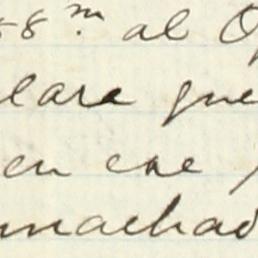 88 m. al O
clara que
en ese
machad